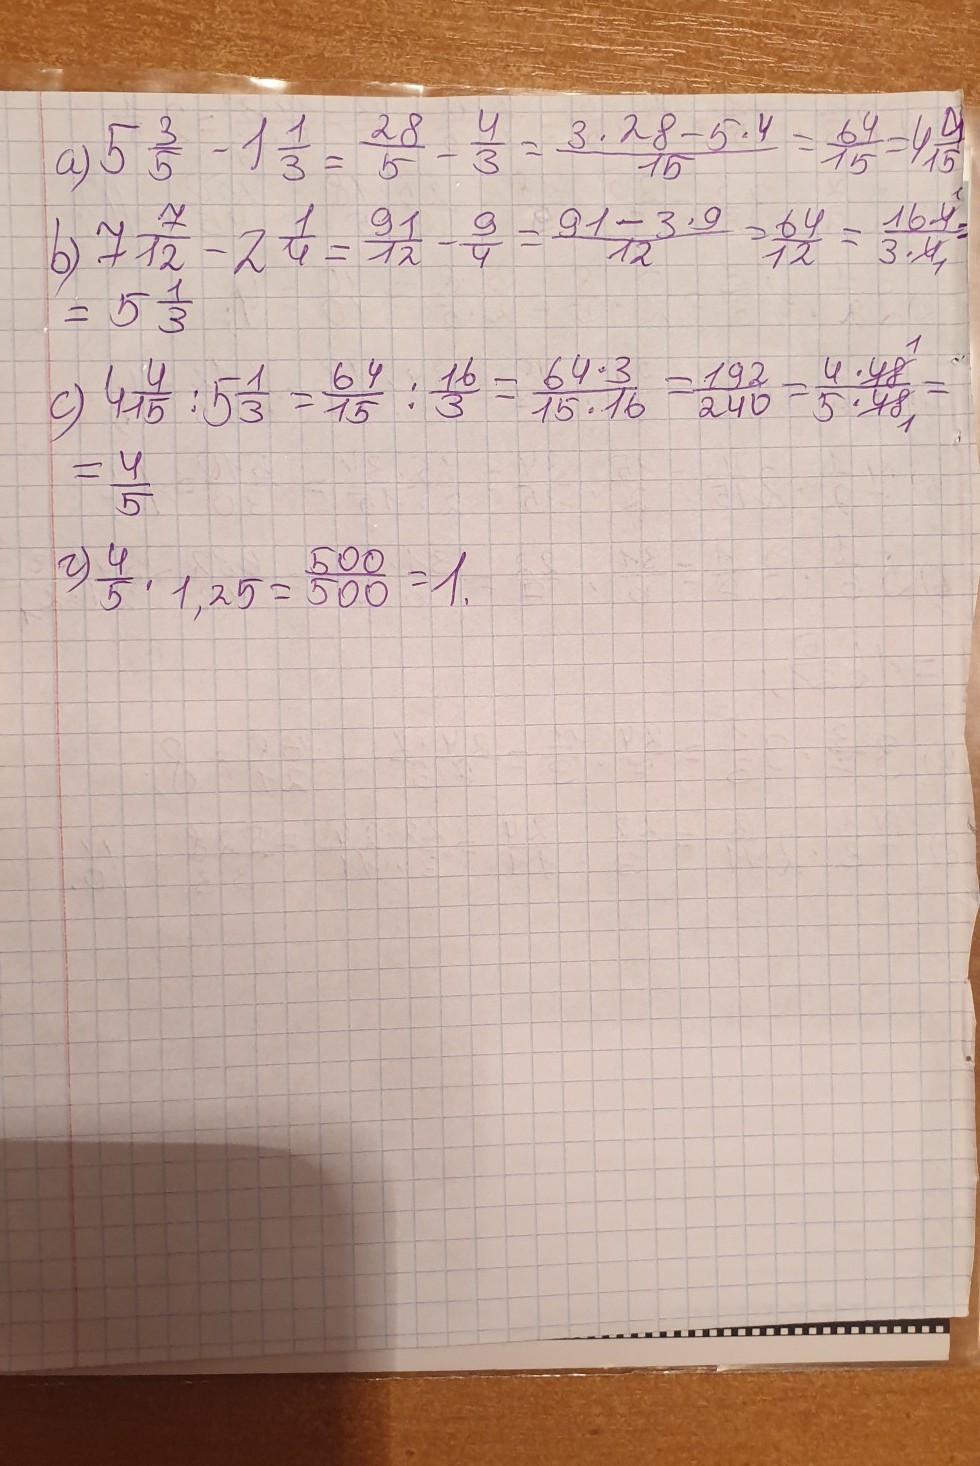 а) 5 3/5 - 1 1/3 = 28/5 - 4/3 = (3·28-5·4)/15 = 64/15 = 4 4/15
b) 7 7/12 - 2 1/4 = 91/12 - 9/4 = (91-3·9)/12 = 64/12 = (16·4)/(3·4) =
= 5 1/3
с) 4 4/15 : 5 1/3 = 64/15 : 16/3 = (64·3)/(15·16) = 192/240 = (4·48)/(5·48) =
= 4/5
г) 4/5 · 1,25 = 500/500 = 1.